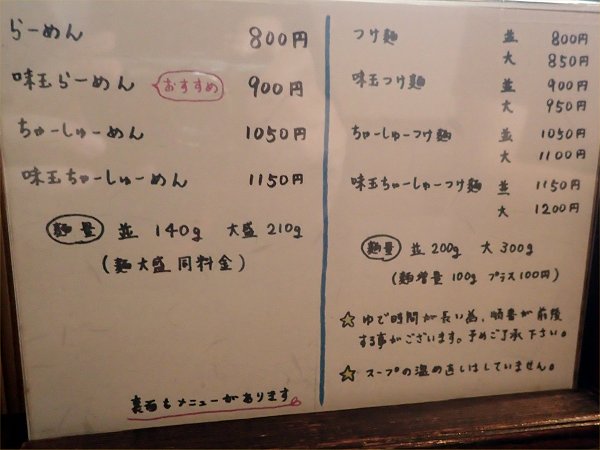 らーめん 800円
味玉らーめん おすすめ 900円
ちゃーしゅーめん 1050円
味玉ちゃーしゅーめん 1150円
麺量 並 140g 大盛 210g
(麺大盛 同料金)
裏面もメニューがあります
つけ麺 並 800円
大 850円
味玉つけ麺 並 900円
大 950円
ちゃーしゅーつけ麺 並 1050円
大 1100円
味玉ちゃーしゅーつけ麺 並 1150円
大 1200円
麺量 並 200g 大 300g
(麺増量 100g プラス100円)
☆ ゆで時間が長い為、順番が前後
する事がございます。予めご了承下さい。
☆ スープの温め直しはしていません。